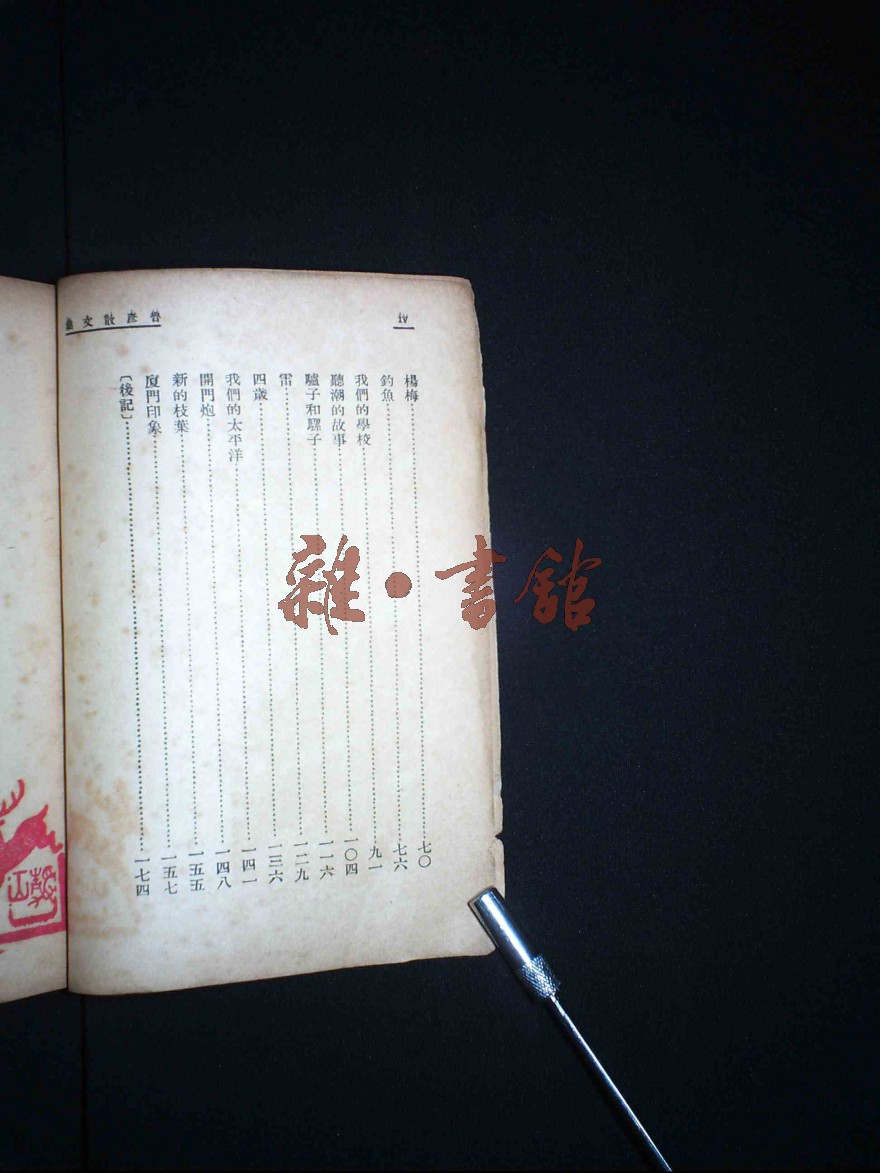 魯彥散文集
iv
楊梅……七〇
釣魚……七六
我們的學校……九一
聽潮的故事……一〇四
驢子和騾子……一一六
雷……一二九
四歲……一三六
我們的太平洋……一四一
開門炮……一四八
新的枝葉……一五五
廈門印象……一五七
〔後記〕……一七四
雜·書館